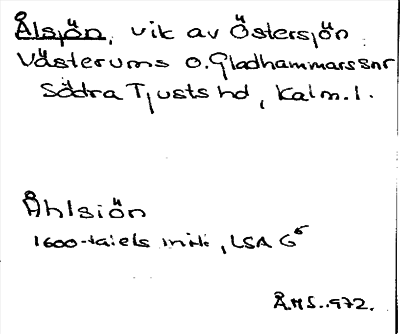 Ålsjön, vik av Östersjön
Västerums o. Gladhammars snr
Södra Tjusts hd, Kalm. l.
Åhlsiön
1600-talets mitt, LSA G6
ÅMS. 972.